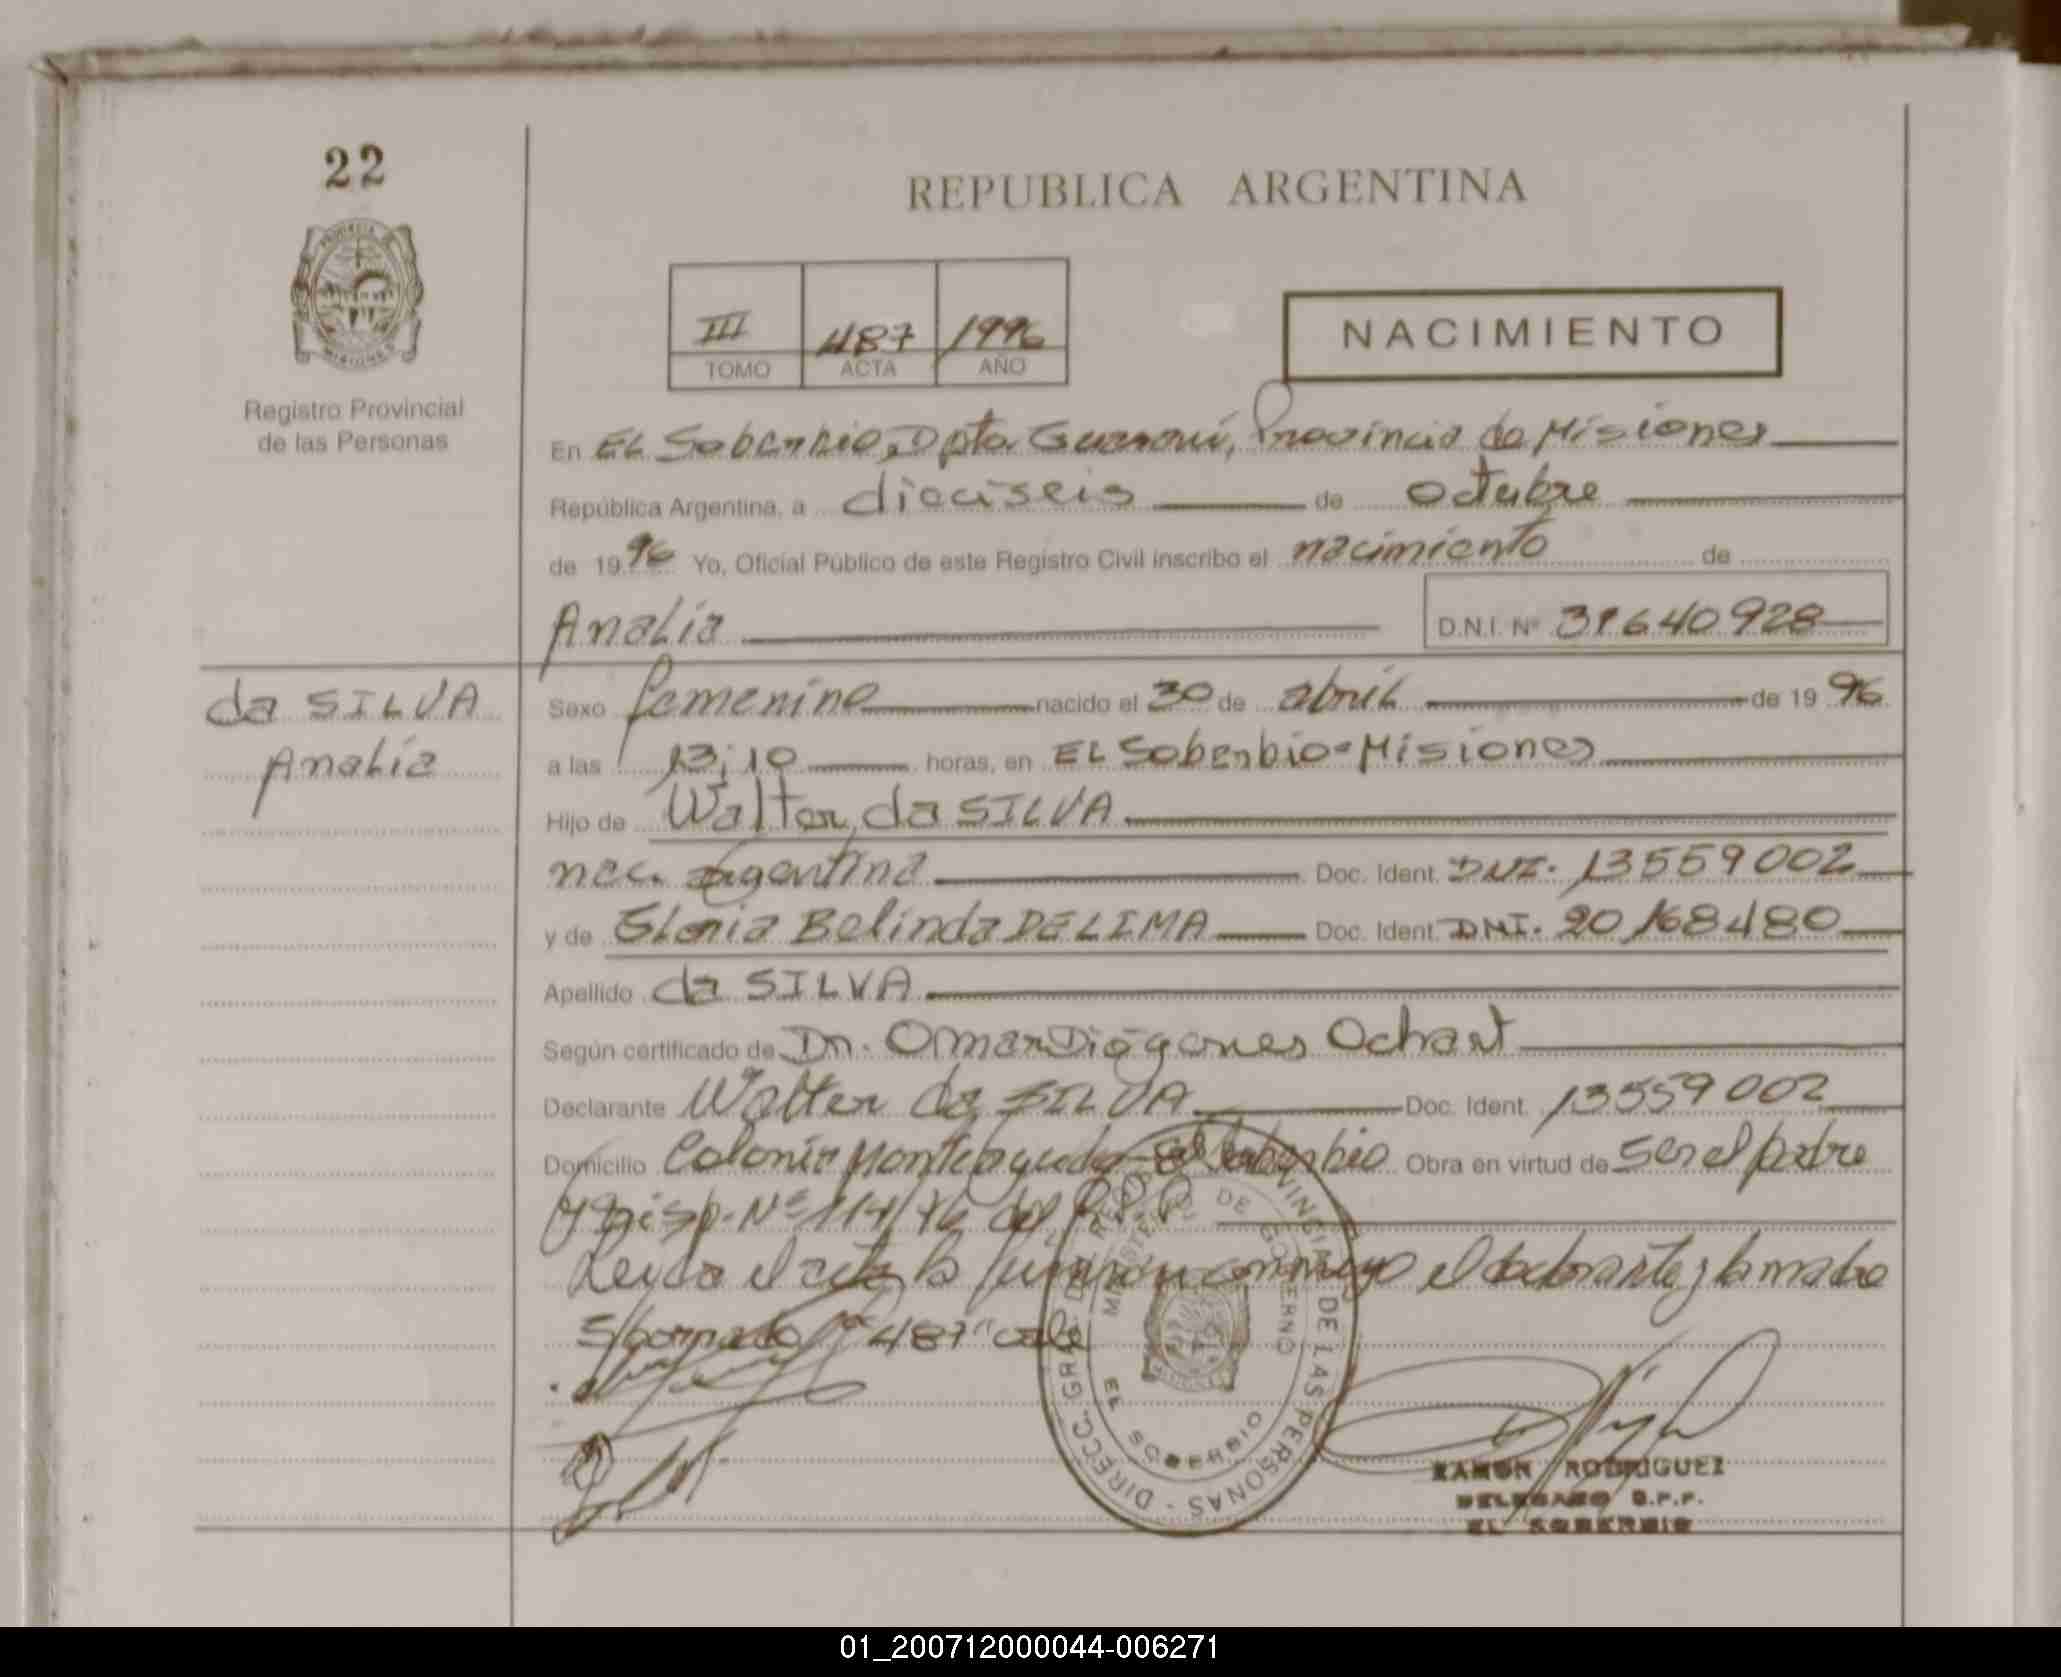 22
REPUBLICA ARGENTINA
III 487 1996
TOMO ACTA AÑO
NACIMIENTO
Registro Provincial
de las Personas
En EL Soberbio, Dpto Guaraní, Provincia de Misiones
República Argentina, a dieciseis de octubre
de 1996 Yo, Oficial Público de este Registro Civil inscribo el nacimiento de
Analía D.N.I. Nº 39640928
da SILVA
Analía
Sexo femenino nacido el 30 de abril de 1996
a las 13:10 horas, en EL Soberbio-Misiones
Hijo de Walter da SILVA
nac. argentina Doc. Ident. DNI. 13559002
y de Gloria Belinda DE LIMA Doc. Ident. DNI. 20168480
Apellido da SILVA
Según certificado de Dr. Omar Diógenes Ochart
Declarante Walter da SILVA Doc. Ident. 13559002
Domicilio Colonia Monteagudo-El Soberbio Obra en virtud de ser el padre
y Disp. Nº 114/96 del R.P.P.
Leída el acta la firman conmigo el declarante y la madre
S/borrado "487" vale
DIRECC. GRAL. DEL REG. PROVINCIAL DE LAS PERSONAS
MINISTERIO DE GOBIERNO
EL SOBERBIO
RAMON RODRIGUEZ
DELEGADO R.P.P.
EL SOBERBIO
01_200712000044-006271